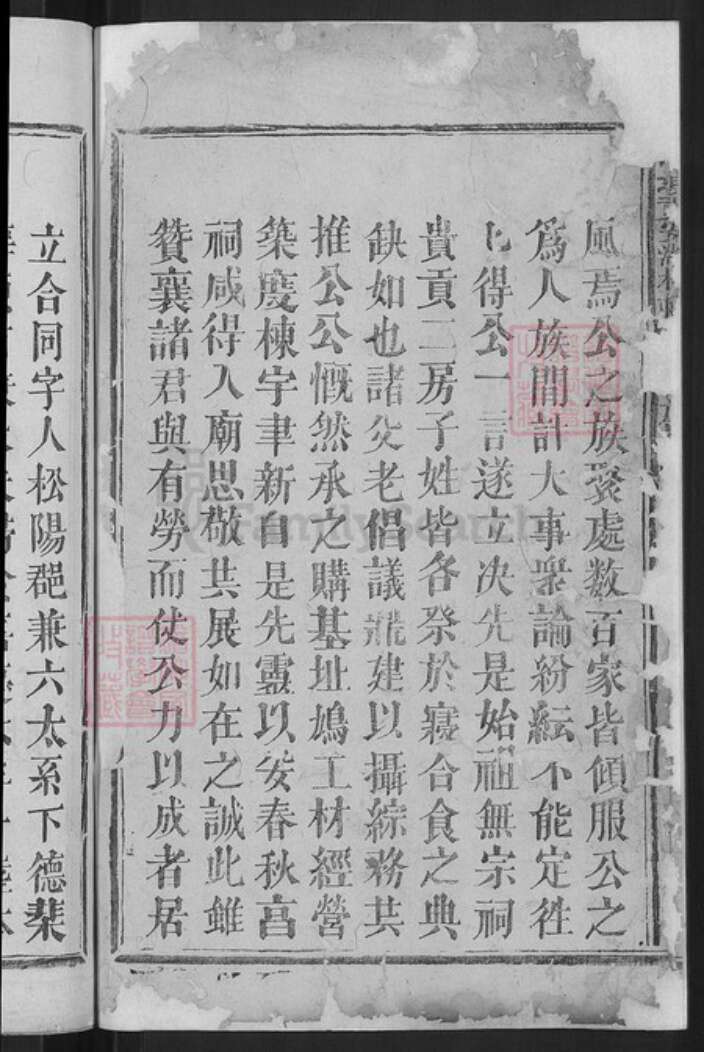 風焉公之族聚處数百家皆傾服公之
爲人族間計大事衆論紛紜不能定徃
得公一言遂立决先是始祖無宗祠
貴貢二房子姓皆各祭於寢合食之典
缺如也諸父老倡議建以攝綜務共
推公公慨然承之購基址鳩工材經營
築度棟宇聿新自是先靈以安春秋亯
祠咸得入廟思敬共展如在之誠此雖
贊襄諸君與有勞而仗公力以成者居
立合同字人松陽郡兼六太系下德棻
FamilySearch